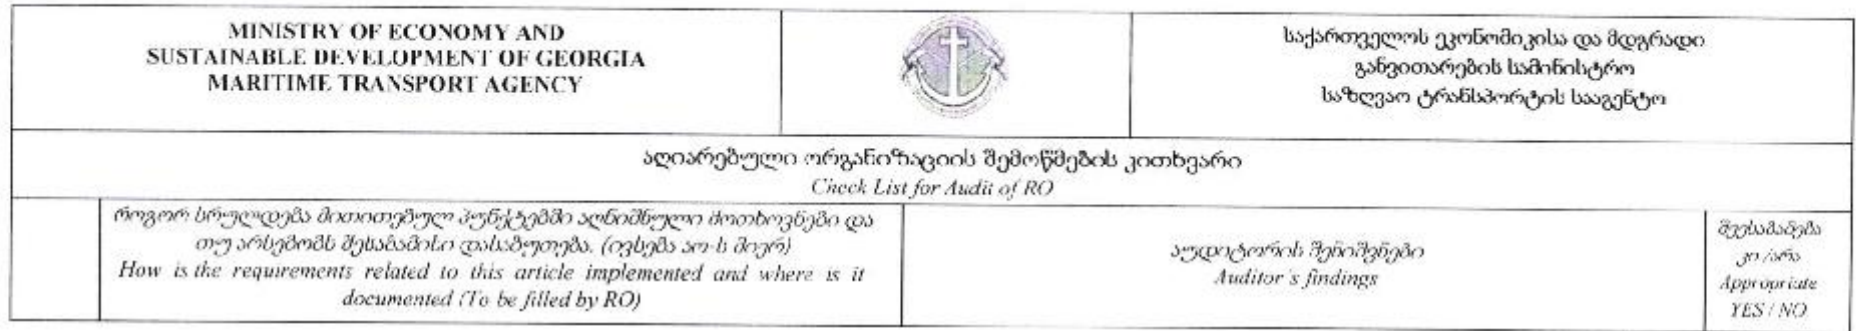 MINISTRY OF ECONOMY AND
SUSTAINABLE DEVELOPMENT OF GEORGIA
MARITIME TRANSPORT AGENCY
საქართველოს ეკონომიკისა და მდგრადი
განვითარების სამინისტრო
საზღვაო ტრანსპორტის სააგენტო
აღიარებული ორგანიზაციის შემოწმების კითხვარი
Check List for Audit of RO
როგორ სრულდება მითითებულ პუნქტებში აღნიშნული მოთხოვნები და
თუ არსებობს შესაბამისი დასაბუთება. (ივსება აო-ს მიერ)
How is the requirements related to this article implemented and where is it
documented (To be filled by RO)
აუდიტორის შენიშვნები
Auditor's findings
შეესაბამება
კი /არა
Appropriate
YES / NO